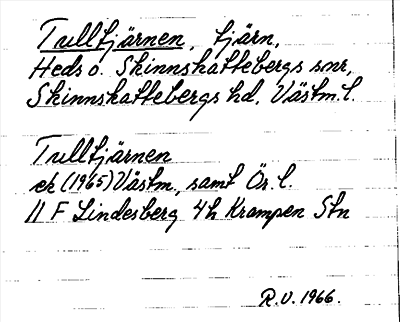 Tulltjärnen, tjärn,
Heds o. Skinnskattebergs snr,
Skinnskattebergs hd, Västm. l.
Tulltjärnen
ek (1965) Västm., samt Ör. l.
11 F Lindesberg 4h Krampen Stn
R.V. 1966.